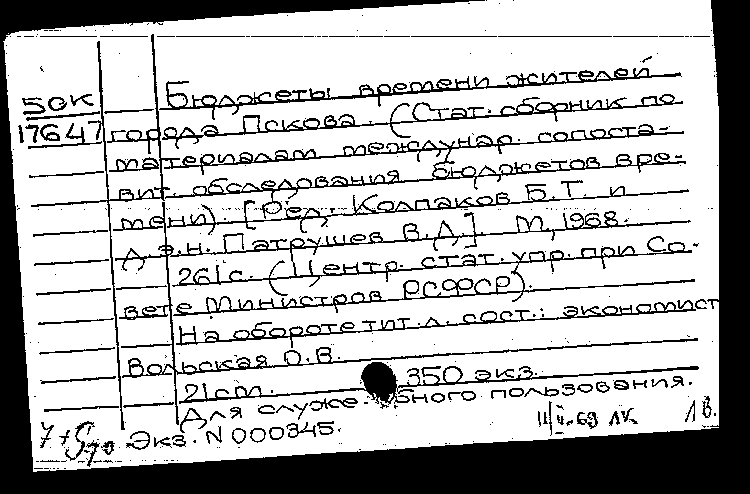 50К
17647
Бюджеты времени жителей
города Пскова. (Стат. сборник по
материалам междунар. сопоста-
вит. обследования бюджетов вре-
мени). [Ред. Колпаков Б.Т. и
д.э.н. Патрушев В.Д.]. М, 1968.
261с. (Центр. стат. упр. при Со-
вете Министров РСФСР).
На обороте тит. л. сост.: экономист
Вольская О.В.
21cm. 350 экз.
Для служебного пользования.
Экз. N 000345.
1В.